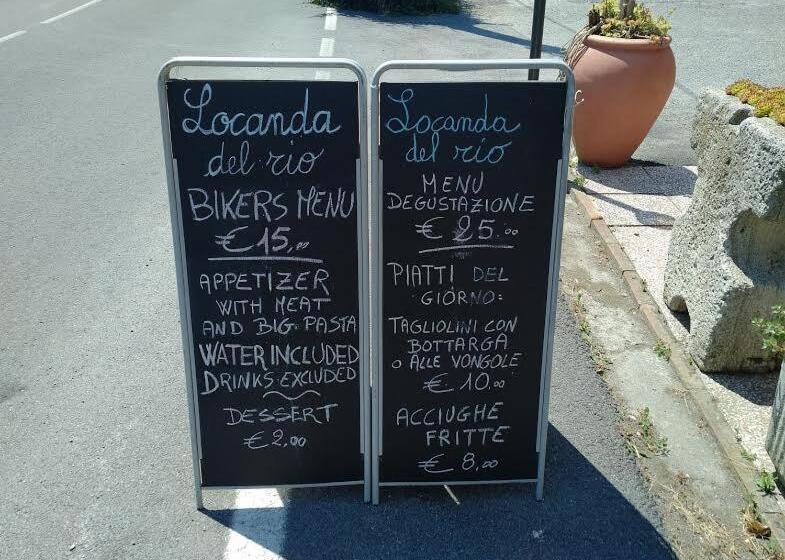 Locanda
del rio
BIKERS MENU
€ 15,00
APPETIZER
WITH MEAT
AND BIG PASTA
WATER INCLUDED
DRINKS EXCLUDED
DESSERT
€ 2,00
Locanda
del rio
MENU
DEGUSTAZIONE
€ 25.00
PIATTI DEL
GIORNO:
TAGLIOLINI CON
BOTTARGA
O ALLE VONGOLE
€ 10.00
ACCIUGHE
FRITTE
€ 8,00